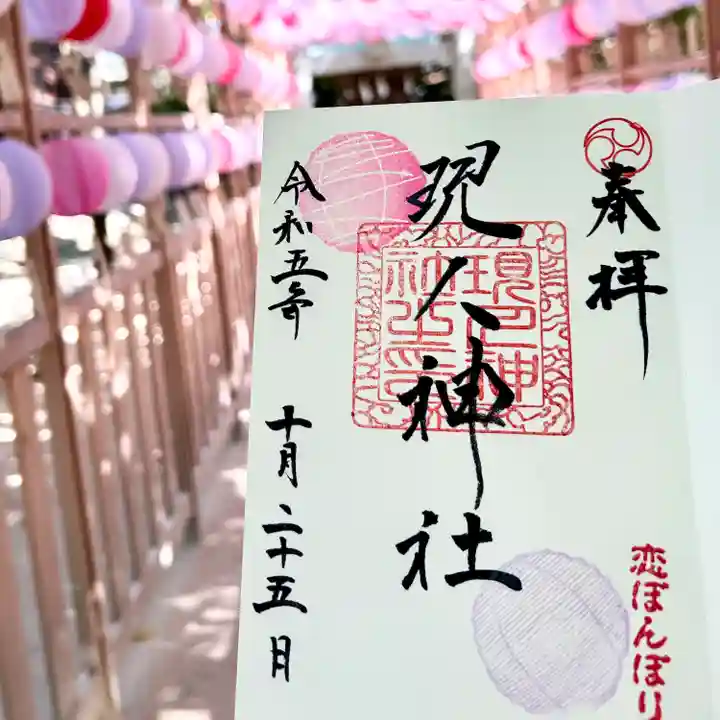 奉拝
現人神社
現人神社之印
令和五年
十月二十五日
恋ぼんぼり